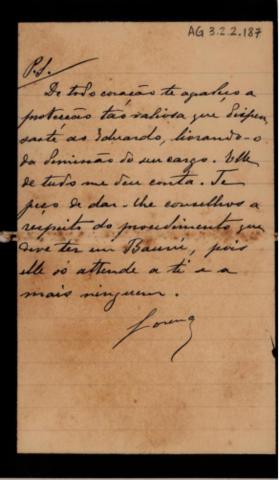 AG 3.2.2.187
P.S./
De todo coração te agradeço a
protecção tão valiosa que dispen
saste ao Eduardo, livrando-o
da demissão do seu cargo. Elle
de tudo me deu conta. Te
peço de dar-lhe conselhos a
respeito do procedimento que
deve ter em Baurú, pois
elle só attende a ti e a
mais ninguem.
Lorena